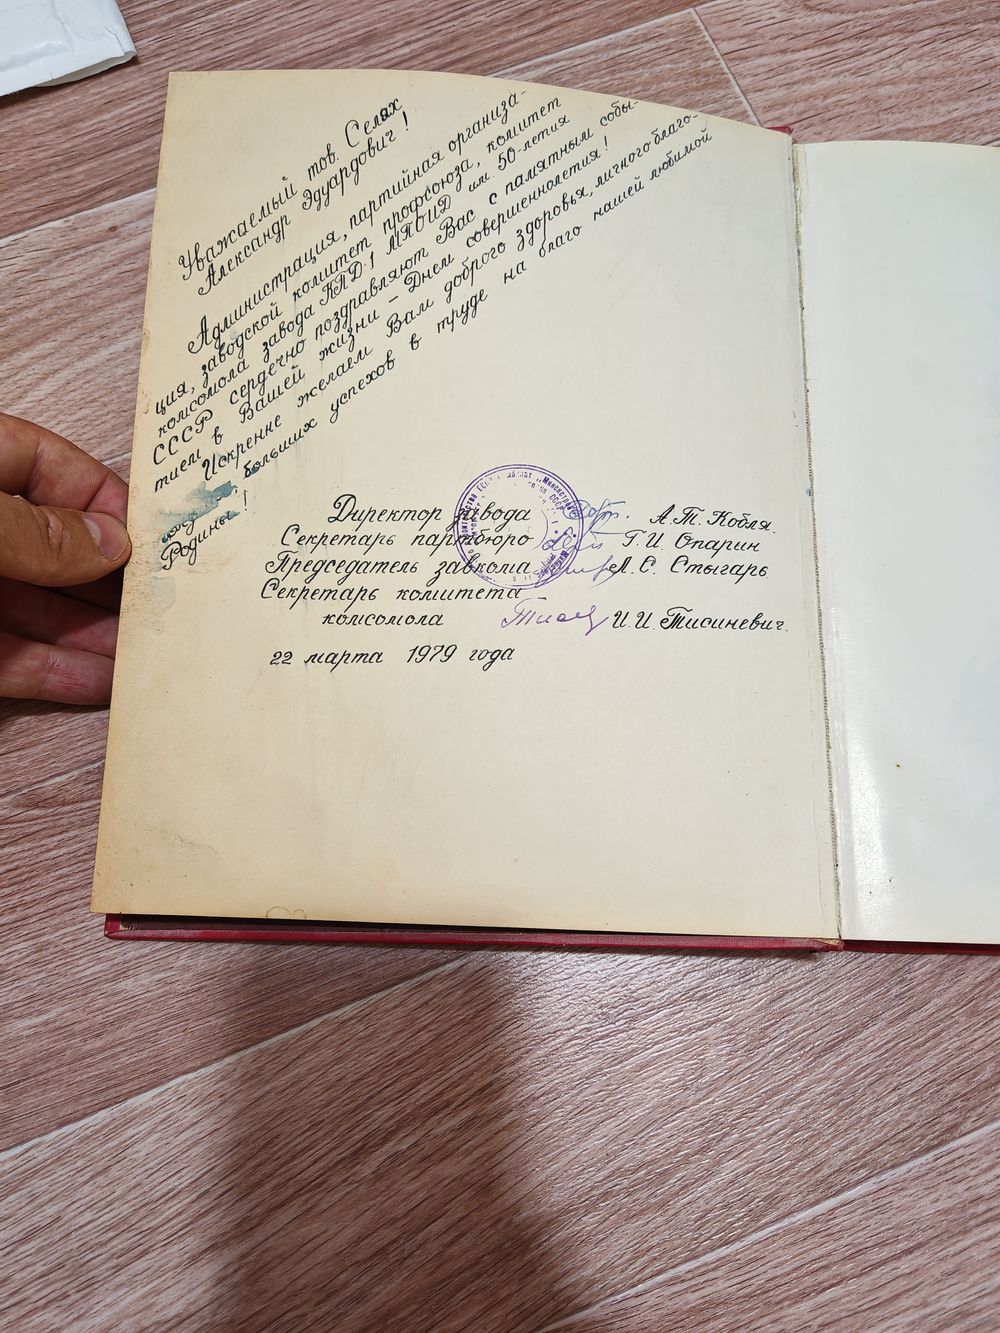 Уважаемый тов. Селях
Александр Эдуардович!
Администрация, партийная организа-
ция, заводской комитет профсоюза, комитет
комсомола завода КПД-1 МПОИД им. 50-летия
СССР сердечно поздравляют Вас с памятным собы-
тием в Вашей жизни – Днем совершеннолетия!
Искренне желаем Вам доброго здоровья, личного благо-
больших успехов в труде на благо нашей любимой
Родины!
Директор завода А.Т. Кобля
Секретарь партбюро Г.И. Опарин
Председатель завкома Л.С. Стыгарь
Секретарь комитета
комсомола И.И. Тисиневич.
22 марта 1979 года